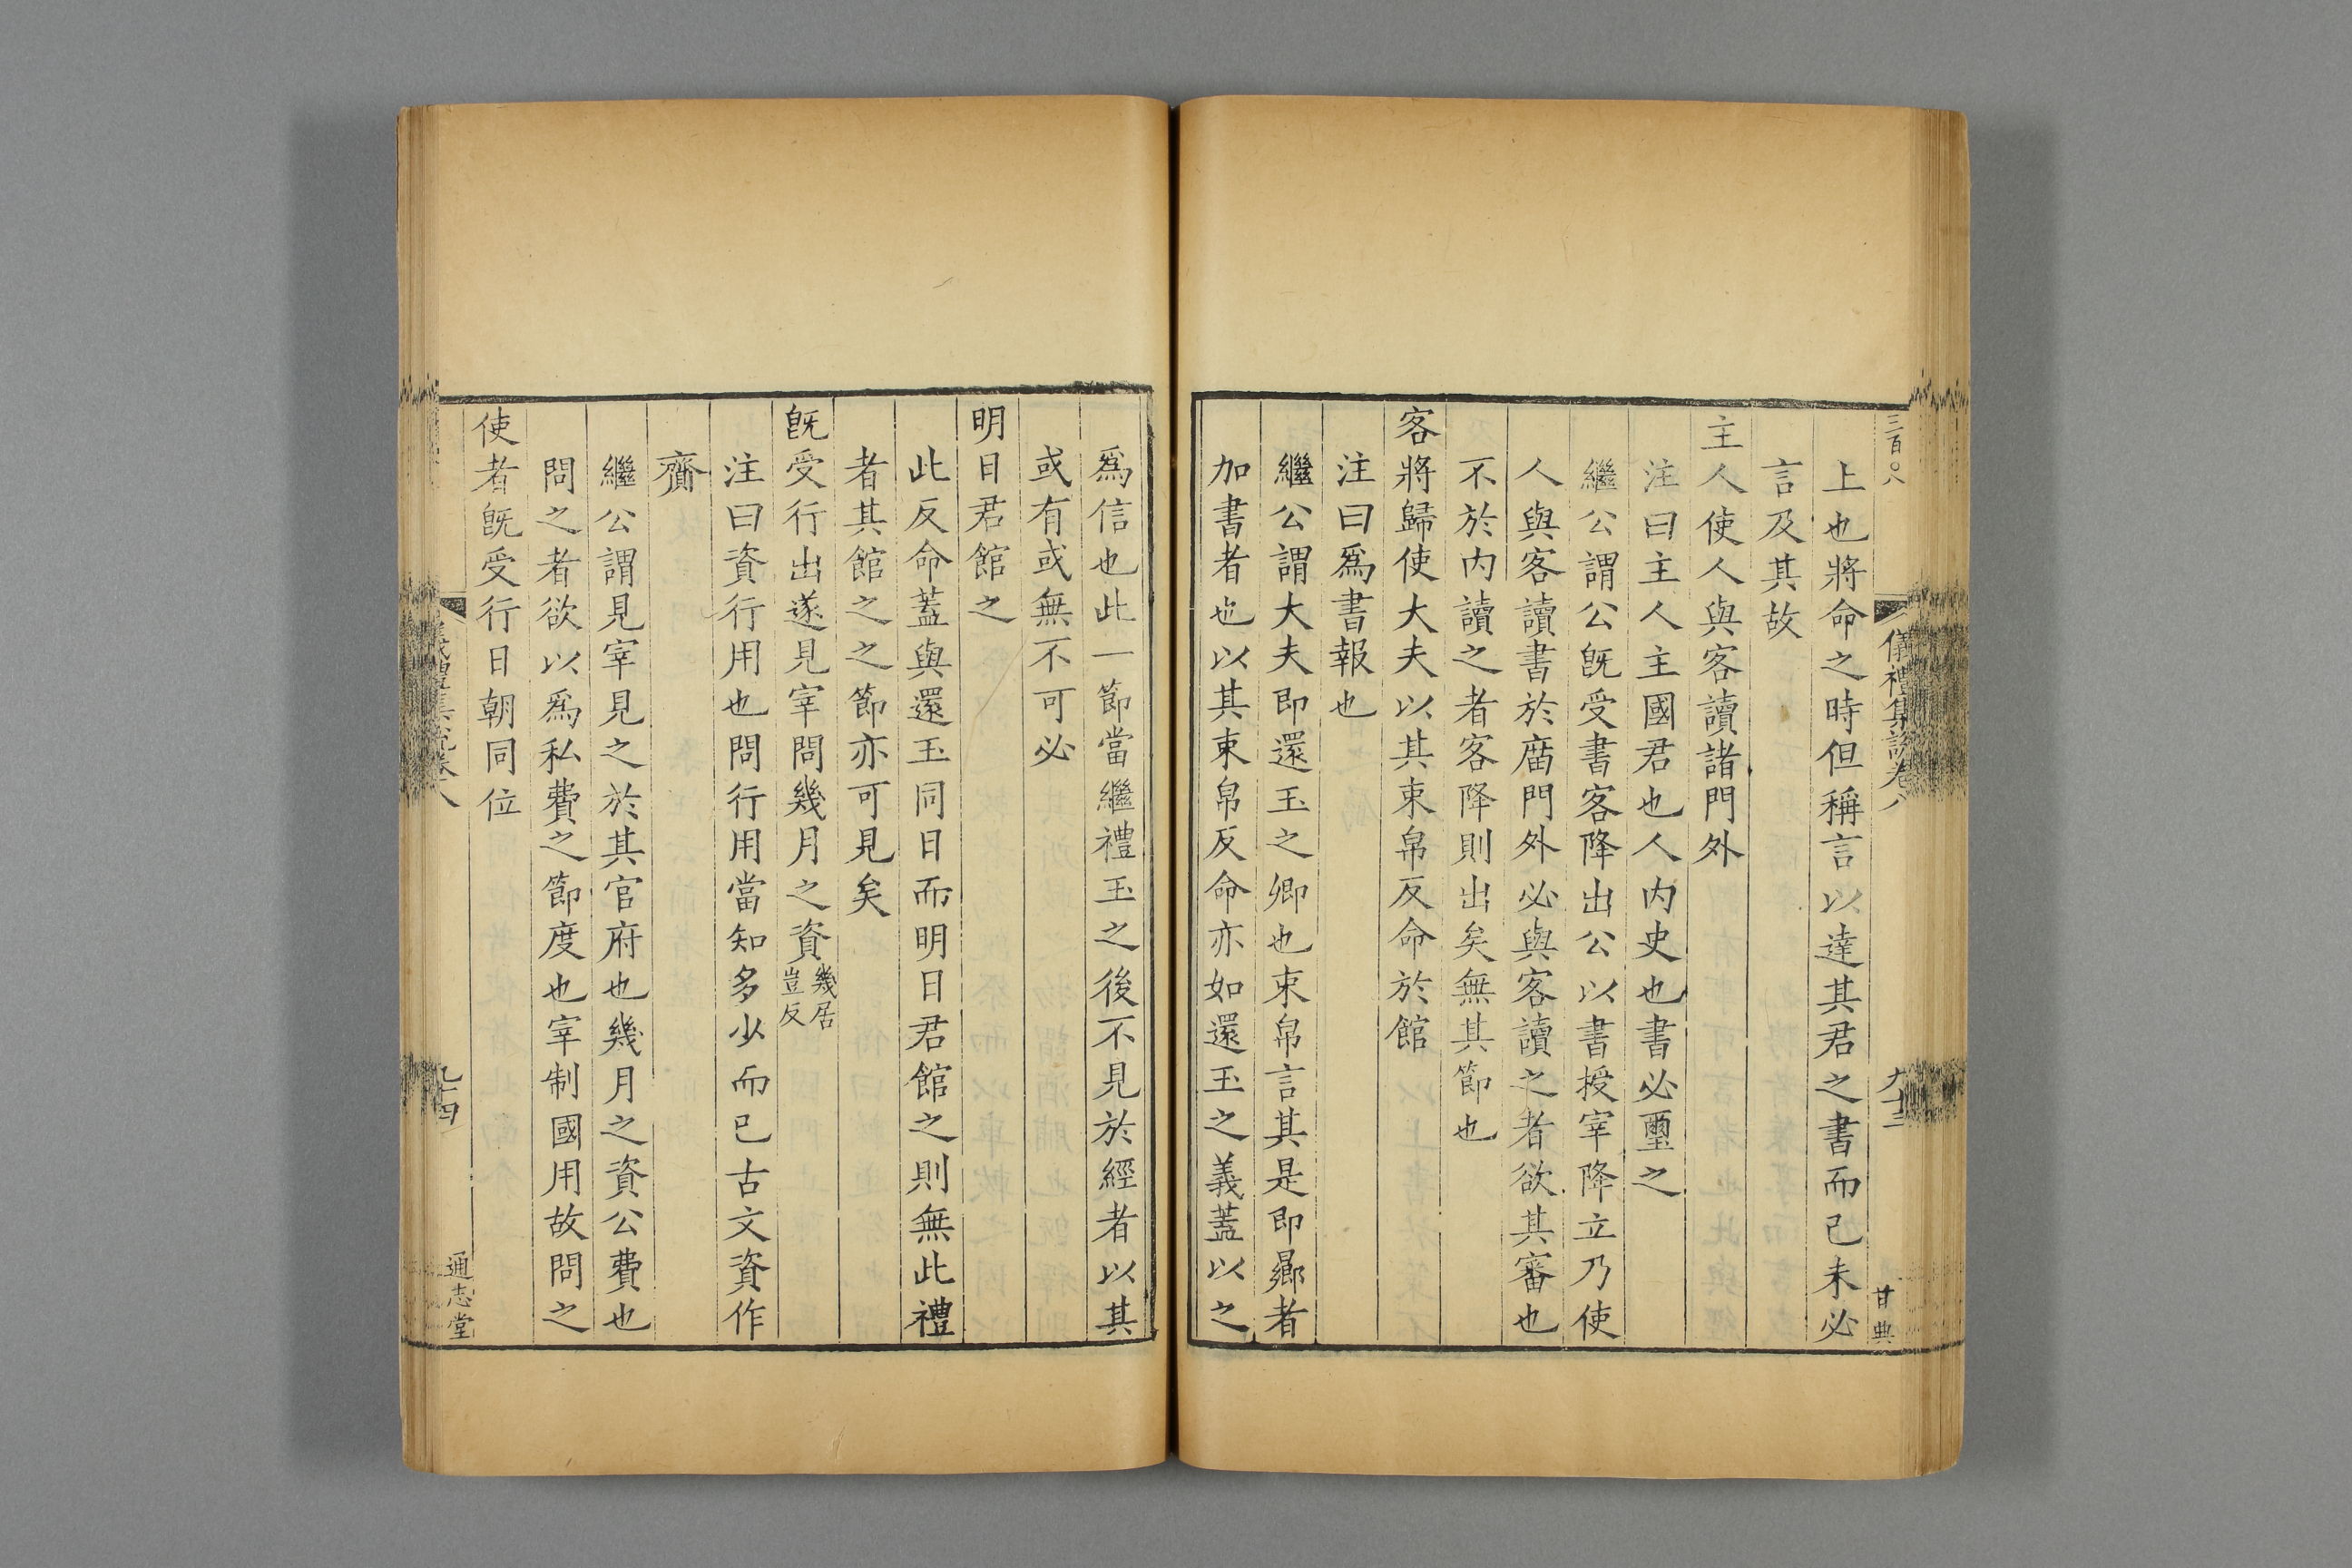 三百〇八
儀禮集說卷八
九十三
甘典
上也將命之時但稱言以達其君之書而已未必
言及其故
主人使人與客讀諸門外
注曰主人主國君也人内史也書必璽之
繼公謂公旣受書客降出公以書授宰降立乃使
人與客讀書於庿門外必與客讀之者欲其審也
不於内讀之者客降則出矣無其節也
客將歸使大夫以其束帛反命於館
注曰爲書報也
繼公謂大夫即還玉之卿也束帛言其是即曏者
加書者也以其束帛反命亦如還玉之義蓋以之
爲信也此一節當繼禮玉之後不見於經者以其
或有或無不可必
明日君館之
此反命蓋與還玉同日而明日君館之則無此禮
者其館之之節亦可見矣
旣受行出遂見宰問幾月之資幾居豈反
注曰資行用也問行用當知多少而已古文資作
齎
繼公謂見宰見之於其官府也幾月之資公費也
問之者欲以爲私費之節度也宰制國用故問之
使者旣受行日朝同位
儀禮集說卷八
九十四
通志堂